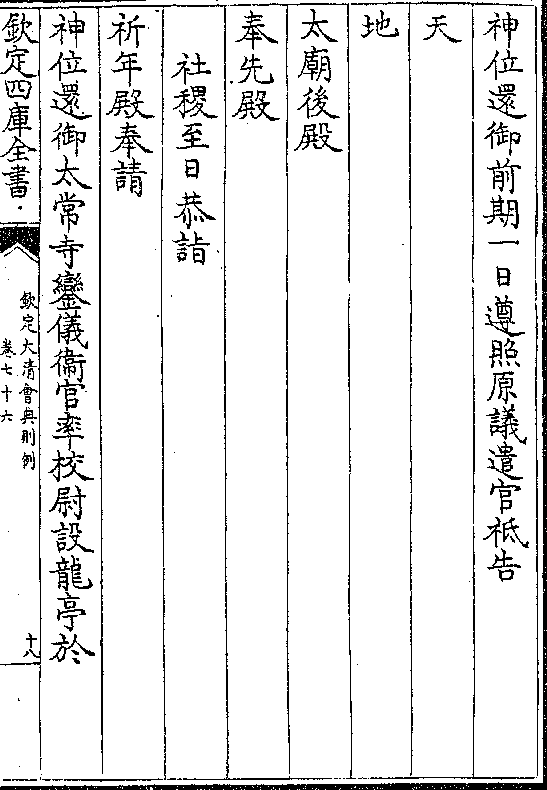 神位還御前期一日遵照原議遣官祗告
天
地
太廟後殿
奉先殿
社稷至日恭詣
祈年殿奉請
神位還御太常寺鑾儀衞官率校尉設龍亭於
欽定四庫全書
欽定大清會典則例
卷七十六
十八